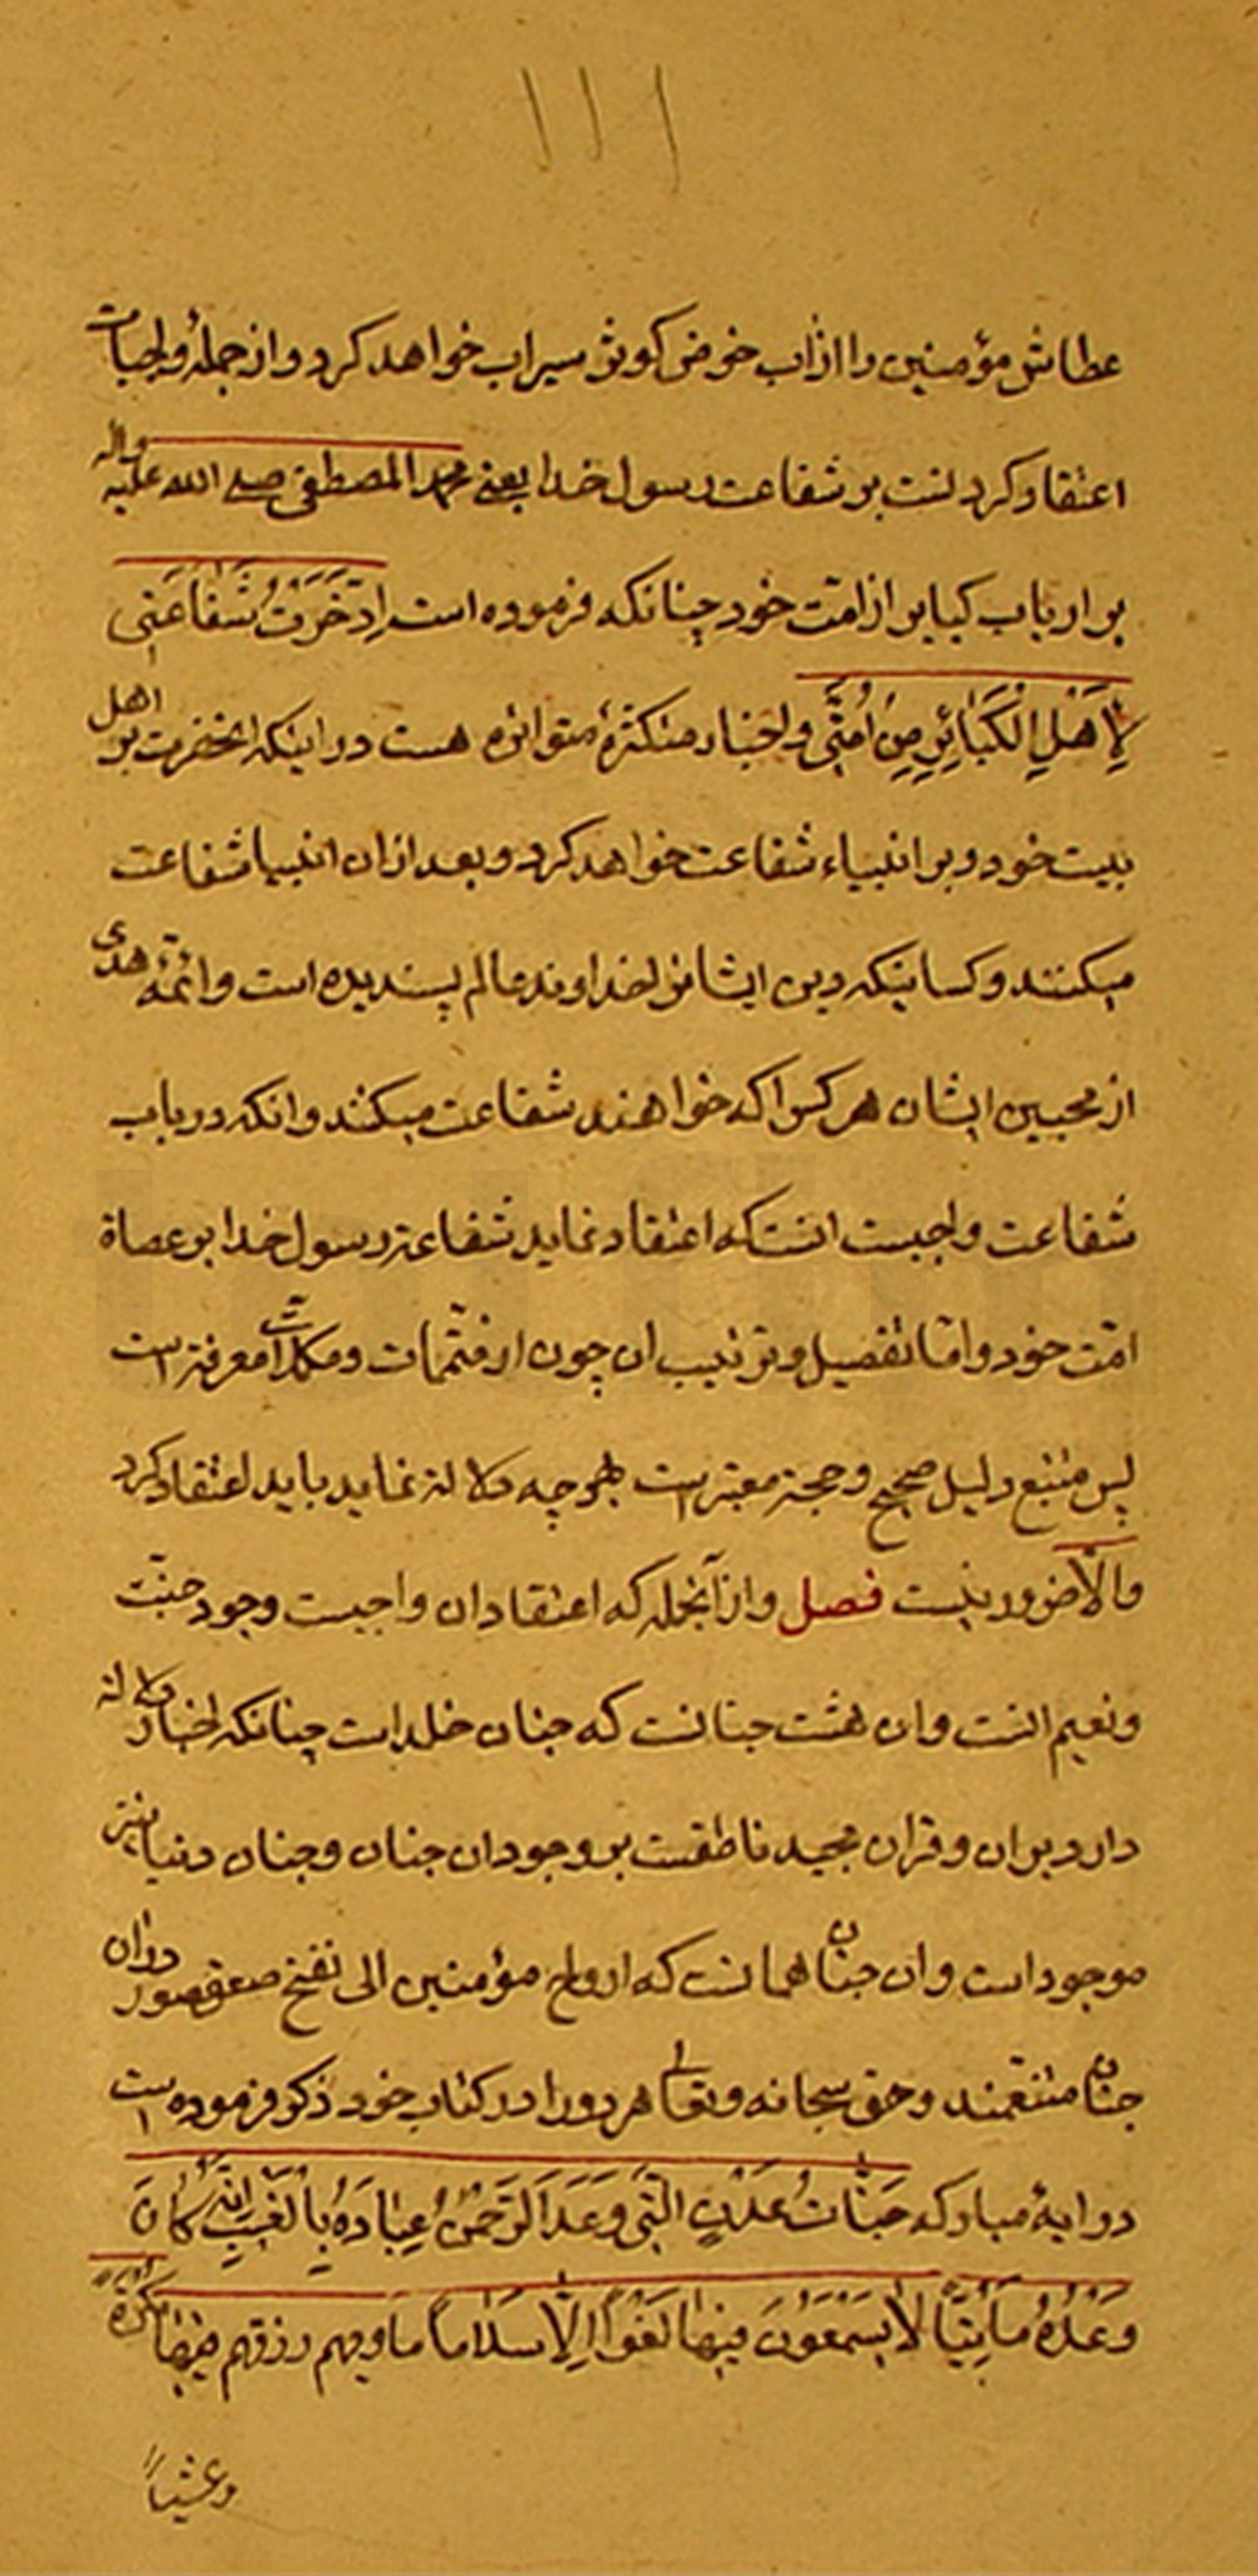 ۱۱۱
عطاش مؤمنین را از آب حوض کوثر سیراب خواهد کرد و از جمله واجبات
اعتقاد کردنست بر شفاعت رسول خدا یعنے محمد المصطفی صلے الله علیه واله
بر ارباب کبایر از امّت خود چنانکه فرموده است اِدَّخَرْتُ شَفٰاعَتی
لِاَهْلِ الْکَبٰائِرِ مِنْ اُمَّتی و اخبار متکثرهٔ متواتره هست در اینکه انحضرت بر اهل
بیت خود و بر انبیاء شفاعت خواهد کرد و بعد از ان انبیا شفاعت
میکنند و کسانیکه دین ایشانرا خداوند عالم پسندیده است و ائمّهٔ هدی
از محبین ایشان هر کس را که خواهند شفاعت میکنند و انکه در باب
شفاعت واجبست انستکه اعتقاد نماید شفاعة رسول خدا بر عصاة
امّت خود و امّا تفصیل و ترتیب ان چون از متمّمات و مکمّلات معرفة است
پس متتبع دلیل صحیح و حجة معتبر است بهر چه دلالة نماید باید اعتقاد کرد
والّا ضرور نیست فصل و از آنجمله که اعتقاد ان واجبست وجود جنّت
و نعیم انست و ان هشت جنانست که جنان خلد است چنانکه اخبار دلالة
دارد بران و قران مجید ناطقست بر وجود ان جنان و جنان دنیا نیز
موجود است و ان جنان همانست که ارواح مؤمنین الی نفخ صعق صور در ان
جنان متنعّمند و حق سبحانه و تعالی هر دو را در کتاب خود ذکر فرموده است
در ایهٔ مبارکه جَنّٰاتُ عَدْنٍ الَّتی وَعَدَ الرَّحْمٰنُ عِبٰادَهُ بِالْغَیْبِ اِنَّهُ کٰانَ
وَعْدُهُ مَأتِیّاً لاٰیَسْمَعُونَ فیهٰا لَغْواً اِلّٰا سَلٰاماً ماولهم رزقهم فیهٰا بُکْرَةً
وعشیاً